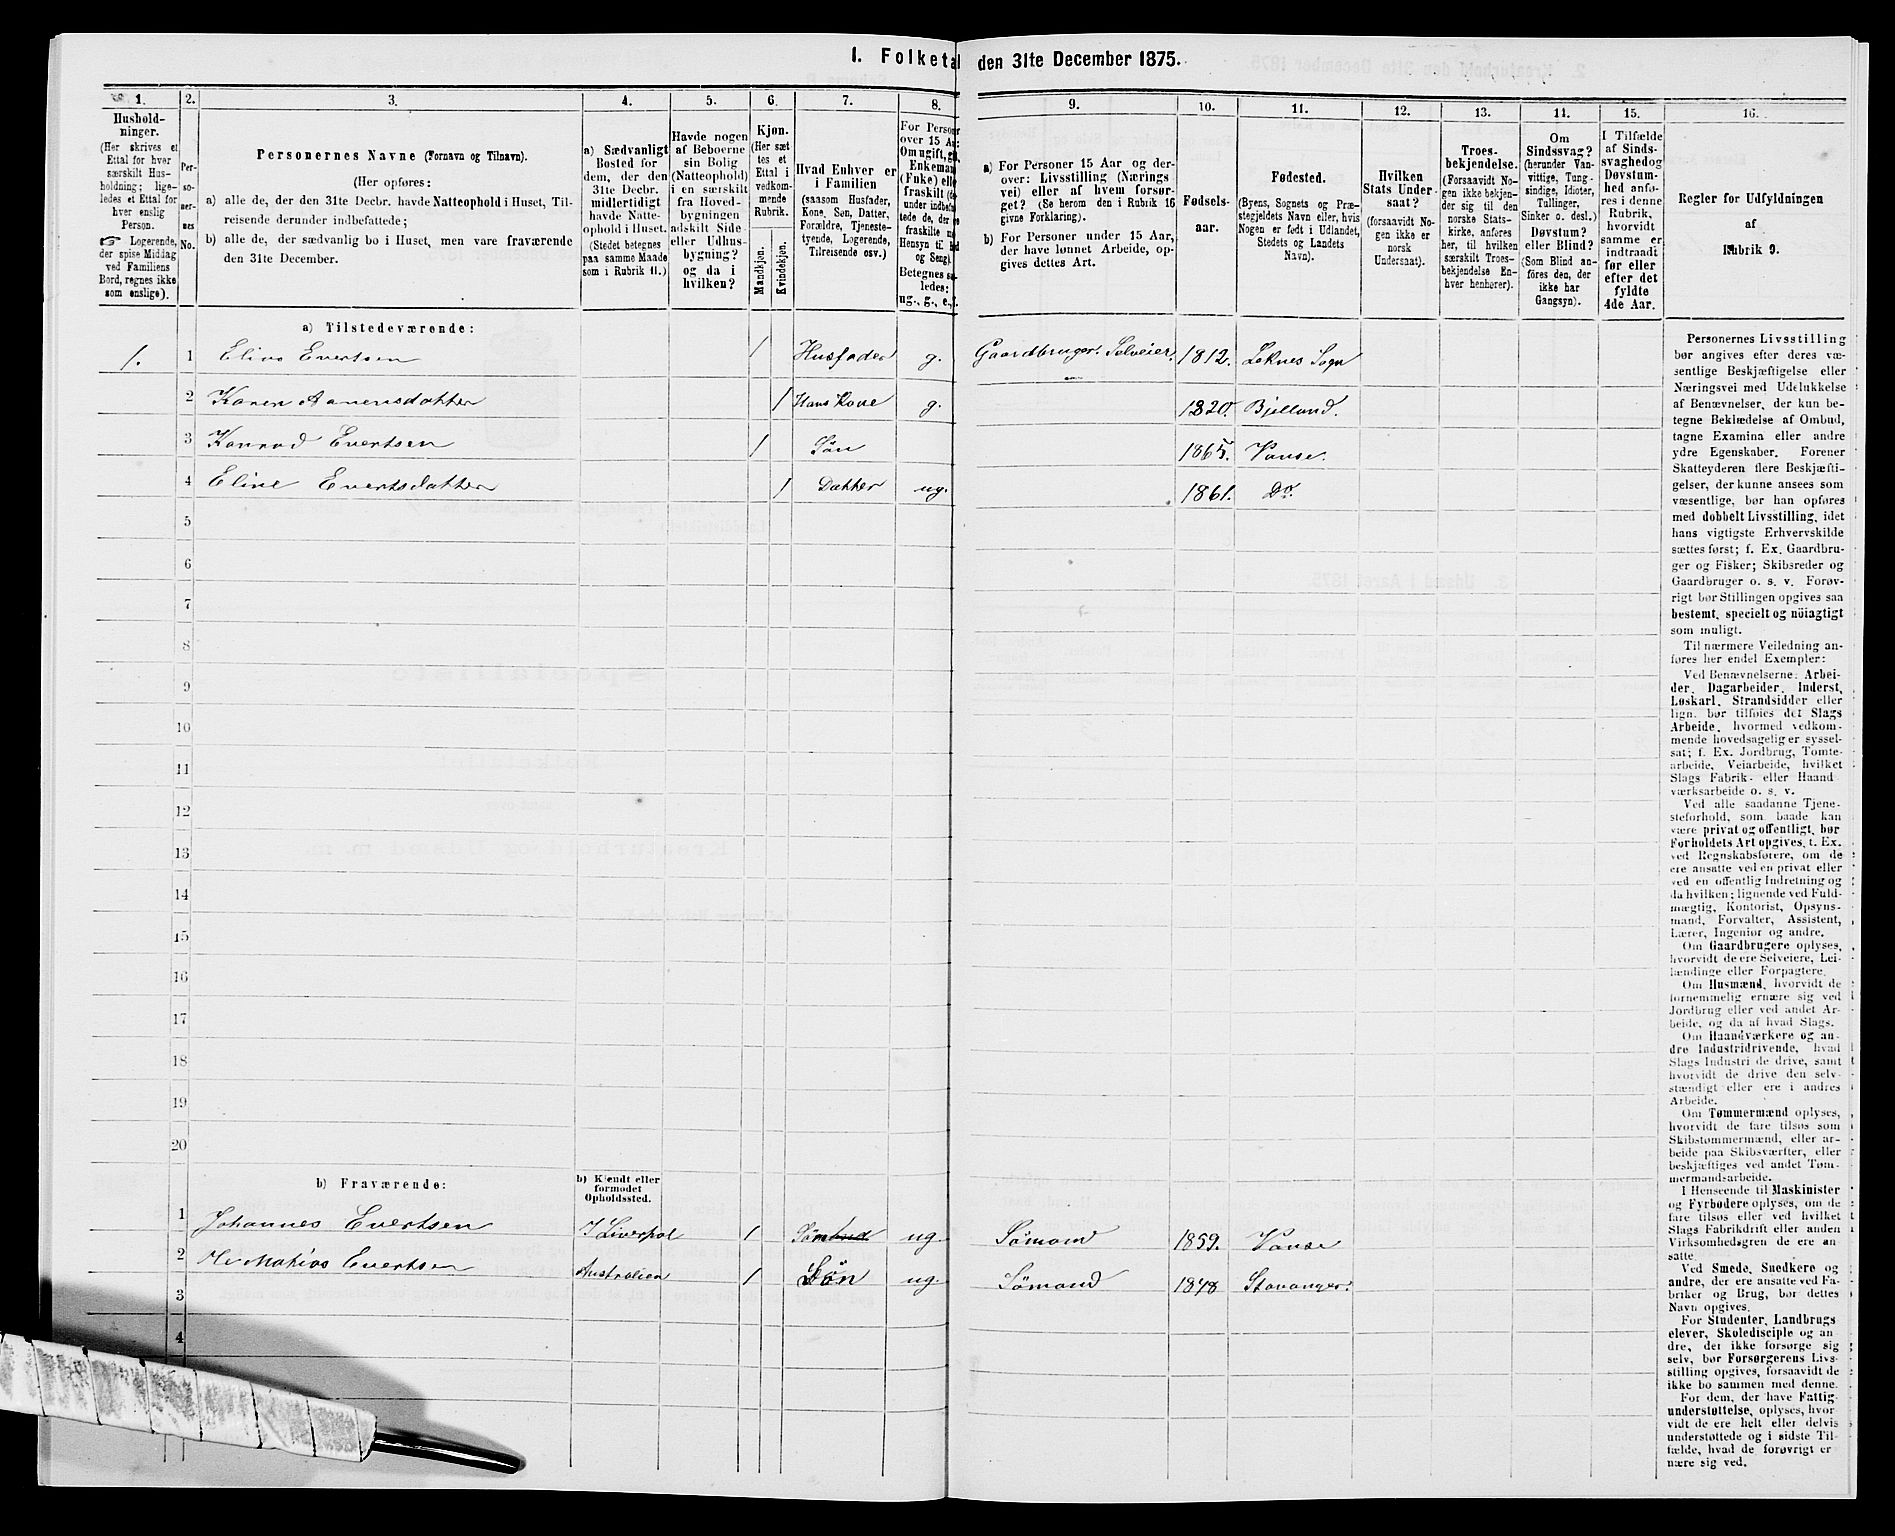 1. Folketal den 31te December 1875.
1.
Hushold-
ninger.
(Her skrives et
Ettal for hver
særskilt Hus-
holdning; lige-
ledes et Ettal for
hver enslig
Person.
☞ Logerende,
der spise Middag
ved Familiens
Bord, regnes ikke
som enslige).
2.
Per-
so-
ner-
nes
No.
3.
Personernes Navne (Fornavn og Tilnavn).
(Her opføres:
a) alle de, der den 31te Decbr. havde Natteophold i Huset, Til-
reisende derunder indbefattede;
b) alle de, der sædvanlig bo i Huset, men vare fraværende
den 31te December.
4.
a) Sædvanligt
Bosted for
dem, der den
31te Decbr.
midlertidigt
havde Natte-
ophold i Huset.
(Stedet betegnes
paa samme Maade
som i Rubrik 11.)
5.
Havde nogen
af Beboerne
sin Bolig
(Natteophold)
i en særskilt
fra Hoved-
bygningen
adskilt Side-
eller Udhus-
bygning?
og da i
hvilken?
6.
Kjøn.
(Her sæt
tes et
Ettal i
vedkom-
mende
Rubrik.
Mandkjøn.
Kvindekjøn.
7.
Hvad Enhver er
i Familien
(saasom Husfader,
Kone, Søn, Datter,
Forældre, Tjeneste-
tyende, Logerende,
Tilreisende osv.)
8.
For Person
over 15 Aa
Om ugift, gi
Enkeman
(Enke) elle
fraskilt (de
under indbefat
tede de, der
fraskilte m
Hensyn til
og Seng).
Betegnes sa
ledes:
ug., g., e., f.
9.
a) For Personer 15 Aar og der-
over: Livsstilling (Nærings-
vei) eller af hvem forsør-
get? (Se herom den i Rubrik 16
givne Forklaring).
b) For Personer under 15 Aar,
der have lønnet Arbeide, op-
gives dettes Art.
10.
Fødsels-
aar.
11.
Fødested.
(Byens, Sognets og Præ-
stegjeldets Navn eller, hvis
Nogen er født i Udlandet,
Stedets og Landets
Navn).
12.
Hvilken
Stats Under-
saat?
(forsaavidt No-
gen ikke er
norsk
Undersaat).
13.
Troes-
bekjendelse.
(Forsaavidt No-
gen ikke bekjen-
der sig til den
norske Stats-
kirke, anføres
her, til hvilken
særskilt Troes-
bekjendelse En-
hver henhører).
14.
Om
Sindssvag?
(herunder Van-
vittige, Tung-
sindige, Idioter,
Tullinger,
Sinker o. desl.)
Døvstum?
eller Blind?
(Som Blind an-
føres den, der
ikke har
Gangsyn).
15.
I Tilfælde
af Sinds-
svaghed og
Døvstum-
hed anfø-
res i denne
Rubrik,
hvorvidt
samme er
indtraadt
før eller
efter det
fyldte
4de Aar.
16.
Regler for Udfyldningen
af
Rubrik 9.
a) Tilstedeværende:
1. 1 Elias Evertsen 1 Husfader g. Gaardbruger. Selveier. 1812. Loknes Sogn
2 Karen Aanensdatter 1 Hans Kone g. 1820. Bjelland.
3 Konrad Evertsen 1 Søn 1865. Vanse.
4 Eline Evertsdatter 1 Datter ug. 1861. Do.
5
6
7
8
9
10
11
12
13
14
15
16
17
18
19
20
b) Fraværende:
b) Kjendt eller
formodet
Opholdssted.
1 Johannes Evertsen I Liverpol 1 ug. Sømand 1859. Vanse
2 Mathias Evertsen Australien 1 Søn ug. Sømand 1848 Stavanger.
3
4
Personernes Livsstilling
bør angives efter deres væ-
sentlige Beskjæftigelse eller
Næringsvei med Udelukkelse
af Benævnelser, der kun be-
tegne Beklædelse af Ombud,
tagne Examina eller andre
ydre Egenskaber. Forener
Skatteyderen flere Beskjæfti-
gelser, der kunne ansees som
væsentlige, bør han opføres
med dobbelt Livsstilling, idet
hans vigtigste Erhvervskilde
sættes først; f. Ex. Gaardbru-
ger og Fisker; Skibsreder og
Gaardbruger o. s. v. Forøv-
rigt bør Stillingen opgives saa
bestemt, specielt og nöiagtigt
som muligt.
Til nærmere Veiledning an-
føres her endel Exempler:
Ved Benævnelserne: Arbei-
der, Dagarbeider, Inderst,
Løskarl, Strandsidder eller
lign. bør tilføies det Slags
Arbeide, hvormed vedkom-
mende hovedsagelig er syssel-
sat; f. Ex. Jordbrug, Tomte-
arbeide, Veiarbeide, hvilket
Slags Fabrik- eller Haand-
værksarbeide o. s. v.
Ved alle saadanne Tjene-
steforhold, som baade kan
være privat og offentligt, bør
Forholdets Art opgives, t. Ex.
ved Regnskabsførere, om de
ere ansatte ved en privat eller
ved en offentlig Indretning og
da hvilken; lignende ved Fuld-
mægtig, Kontorist, Opsyns-
mand, Forvalter, Assistent,
Lærer, Ingeniør og andre.
Om Gaardbrugere oplyses,
hvorvidt de ere Selveiere, Lei-
lændinge eller Forpagtere.
Om Husmænd, hvorvidt de
fornemmelig ernære sig ved
Jordbrug eller ved andet Ar-
beide, og da af hvad Slags.
Om Haandværkere og an-
dre Industridrivende, hvad
Slags Industri de drive, samt
hvorvidt de drive den selv-
stændigt eller ere i andres
Arbeide.
Om Tømmermænd oplyses,
hvorvidt de fare tilsøs som
Skibstømmermænd, eller ar-
beide paa Skibsværfter, eller
beskjæftiges ved andet Tøm-
mermandsarbeide.
I Henseende til Maskinister
og Fyrbødere oplyses, om de
fare tilsøs eller ved hvilket
Slags Fabrikdrift eller anden
Virksomhedsgren de ere an-
satte
Ved Smede, Snedkere og
andre, der ere ansatte ved Fa-
briker og Brug, bør dettes
Navn opgives.
For Studenter, Landbrugs
elever, Skoledisciple og an-
dre, der ikke forsørge sig
selv, bør Forsørgerens Livs-
stilling opgives, forsaavidt de
ikke bo sammen med denne.
For dem, der have Fattig-
understøttelse, oplyses, hvor-
vidt de ere helt eller delvis
understøttede og i sidste Til-
fælde, hvad de forøvrigt er-
nære sig ved.